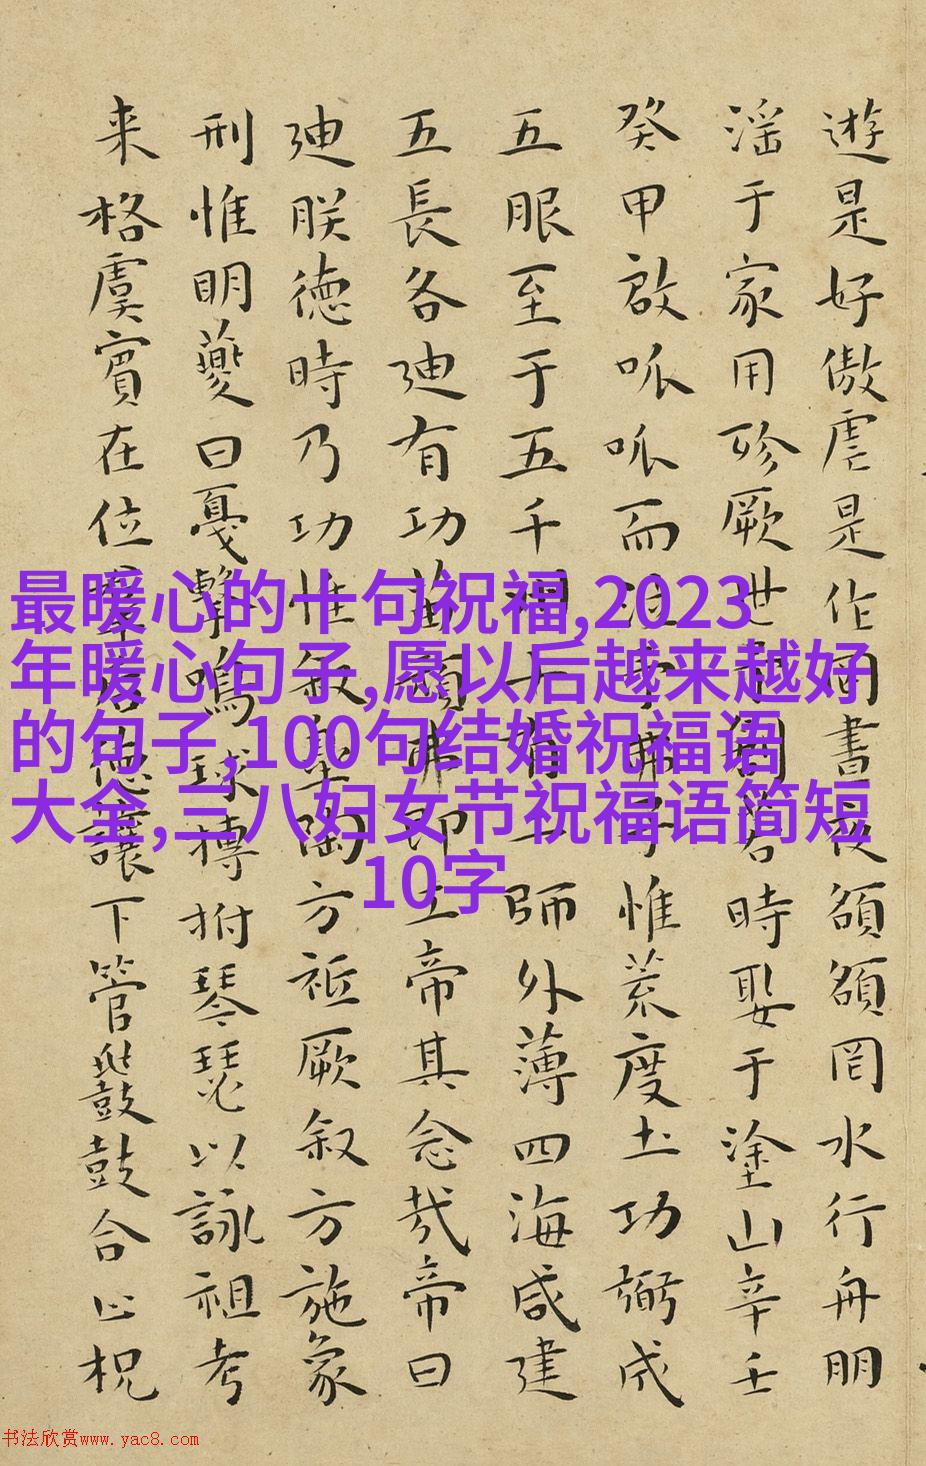 遊是好傲虐是作罔晝夜頟頟罔水行舟朋
淫于家用殄厥世予創若時娶于塗山辛壬
癸甲啟呱呱而泣予弗子惟荒度土功弼成
五服至于五千州十有二師外薄四海咸建
五長各迪有功苗頑弗即工帝其念哉帝曰
迪朕德時乃功惟叙臯陶方祗厥叙方施象
刑惟明夔曰戛擊鳴球搏拊琴瑟以詠祖考
来格虞賓在位羣后德讓下管鼗鼓合止柷
最暖心的十句祝福,2023
年暖心句子,愿以后越来越好
的句子,100句结婚祝福语
大全,三八妇女节祝福语简短
10字
书法欣赏www.yac8.com